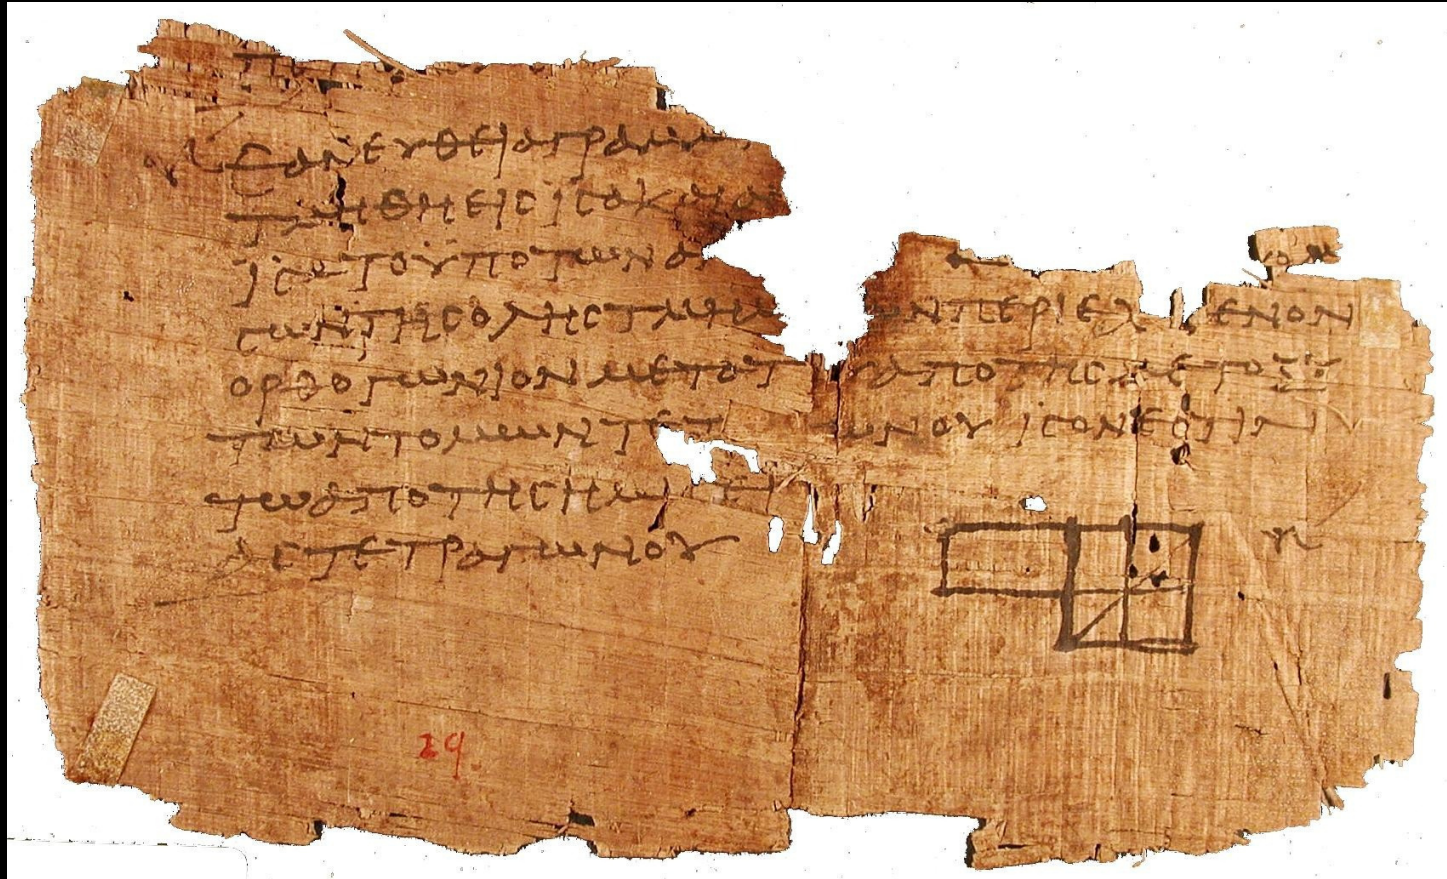 ΕΑΝΕΥΘΕΙΑΓΡΑΜΜ
ΤΜΗΘΗΕΙϹΙϹΑΚΑΙΑ
ΙϹΑΤΟΫΠΟΤΩΝΑ
ϹΩΝΤΗϹΟΛΗϹΤΜΗΜΑ ΩΝΠΕΡΙΕΧ ΕΝΟΝ
ΟΡΘΟΓΩΝΙΟΝΜΕΤΑΤ ΑΠΟΤΗϹΜΕΤΟΞΥ
ΤΩΝΤΟΜΩΝΤΕΤ ΩΝΟΥΙϹΟΝΕϹΤΙΝ
ΤΩΑΠΟΤΗϹΗΜΙϹΕΙ
ΑϹΤΕΤΡΑΓΩΝΟΥ
29